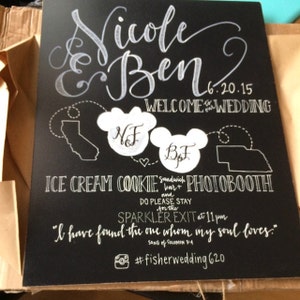 Nicole
& Ben
6.20.15
WELCOME to our WEDDING
N&F
B&F
ICE CREAM COOKIE Sandwich bar + PHOTOBOOTH
AND
DO PLEASE STAY
for the
SPARKLER EXIT at 11pm
"I have found the one whom my soul loves."
SONG OF SOLOMON 3:4
#fisherwedding620